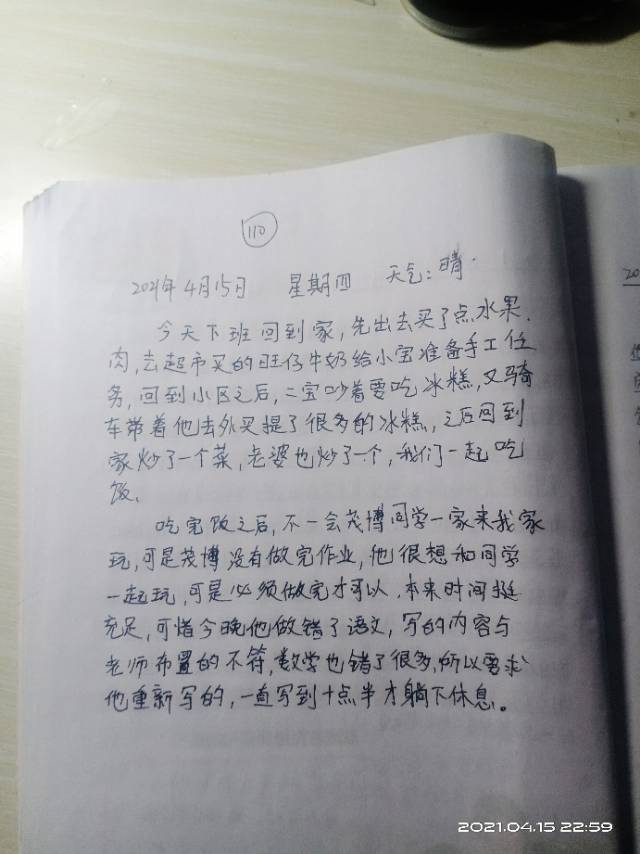 110
2021年4月15日 星期四 天气:晴.
今天下班回到家,先出去买了点水果、
肉,去超市买的旺仔牛奶给小宝准备手工任
务,回到小区之后,二宝吵着要吃冰糕,又骑
车带着他去外买提了很多的冰糕,之后回到
家炒了一个菜,老婆也炒了一个,我们一起吃
饭、
吃完饭之后,不一会茂博同学一家来我家
玩,可是茂博没有做完作业,他很想和同学
一起玩,可是必须做完才可以,本来时间挺
充足,可惜今晚他做错了语文,写的内容与
老师布置的不符,数学也错了很多,所以要求
他重新写的,一直写到十点半才躺下休息。
20
2021.04.15 22:59